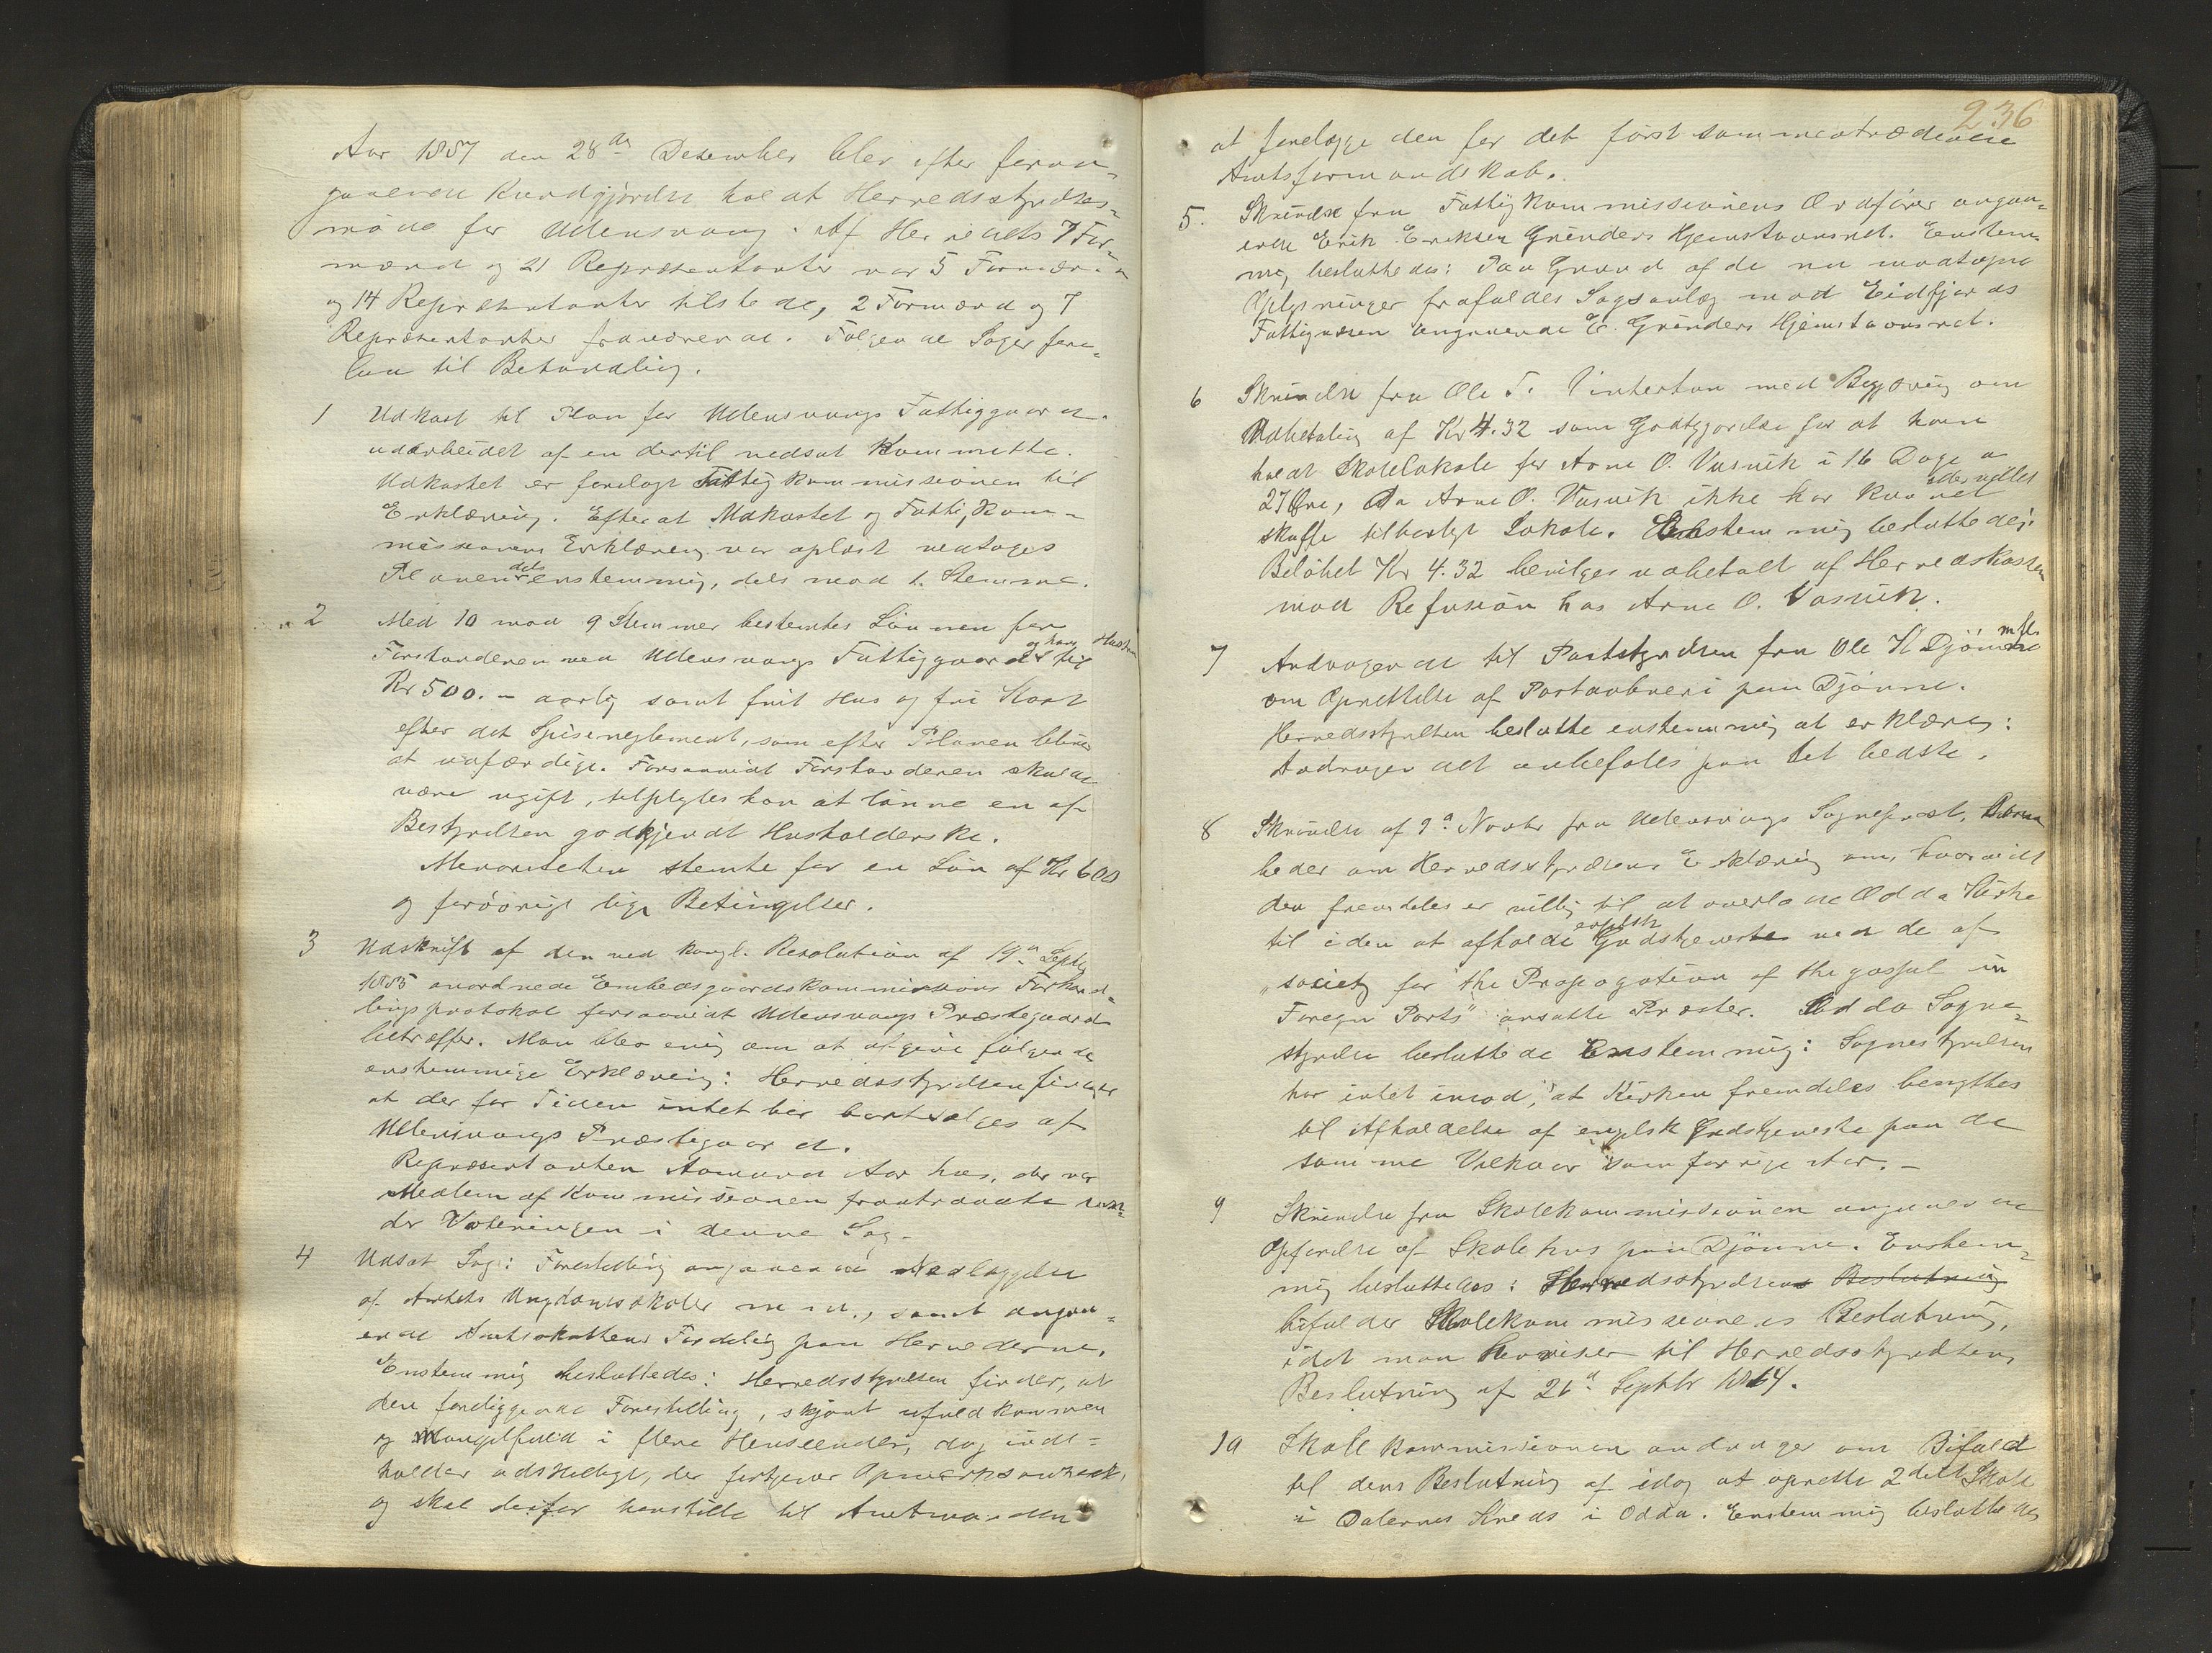 Aar 1887 den 28de Desember blev efter foran-
gaaende Kundgjørelse holdt Herredsstyrelses-
møde for Ullensvang. Af Herredets 7 For-
mænd og 21 Repræsentanter var 5 Formænd
og 14 Repræsentanter tilstede, 2 Formænd og 7
Repræsentanter fraværende. Følgende Sager fore-
kom til Behandling.
1 Udkast til Plan for Ullensvangs Fattiggaard
udarbeidet af en dertil nedsat Kommitte.
Udkastet er forelagt Fattigkommissionen til
Erklæring. Efter at Udkastet og Fattigkom-
missionens Erklæring var oplæst vedtoges
Planen dels enstemmig, dels mod 1 Stemme.
2 Med 10 mod 9 Stemmer bestemtes Lønnen for
Forstanderen ved Ullensvangs Fattiggaard og hans Hustru til
Kr 500.- aarlig samt frit Hus og fri Kost
efter det Spisereglement, som efter Planen bliver
at udfærdige. Forsaavidt Forstanderen skulde
være ugift, tilpligtes han at lønne en af
Bestyrelsen godkjendt Husholderske.
Menoriteten stemte for en Løn af Kr 600
og forøvrigt lige Betingelser.
3 Udskrift af den ved kongl. Resolution af 19de Septbr
1885 anordnede Embedsgaardskommissions Forhand-
lingsprotokol forsaavidt Ullensvangs Præstegaard
betræffer. Man blev enig om at afgive følgende
enstemmige Erklæring: Herredsstyrelsen finder
at der for Tiden intet bør bortsælges af
Ullensvangs Præstegaard.
Repræsentanten Aamund Aarhus, der var
Medlem af Kommissionen fratraadte un-
der Voteringen i denne Sag.
4 Udsat Sag: Forestilling angaaende Nedlæggelse
af Amtets Ungdomsskoler m. m., samt angaa-
ende Amtsskattens Fordeling paa Herrederne.
Enstemmig besluttedes: Herredsstyrelsen finder, at
den foreliggende Forestilling, skjønt ufuldkommen
og mangelfuld i flere Henseender, dog inde-
holder adskilligt, der fortjener Opmærksomhed,
og skal derfor henstille til Amtmanden
236
at forelægge den for det først sammentrædende
Amtsformandskab.
5. Skrivelse fra Fattigkommissionens Ordfører angaa-
ende Erik Eriksen Grønders Hjemstavnsret. Enstem-
mig besluttedes: Paa Grund af de nu modtagne
Oplysninger frafaldes Sagsanlæg mod Eidfjords
Fattigvæsen angaaende E. Grønders Hjemstavnsret.
6 Skrivelse fra Ole T. Vinterton med Begjæring om
Udbetaling af Kr 4.32 som Godtgjørelse for at have
holdt Skolelokale for Arne O. Vasvik i 16 Dage a
27 Øre, da Arne O. Vasvik ikke har kunnet eller villet
skaffe tilbørligt Lokale. Enstemmig besluttedes:
Beløbet Kr 4.32 bevilges udbetalt af Herredskassen
mod Refusion hos Arne O. Vasvik.
7 Andragende til Poststyrelsen fra Ole H Djønne m fl.
om Oprettelse af Postaabneri paa Djønne.
Herredsstyrelsen beslutte enstemmig at erklære:
Andragendet anbefales paa det bedste.
8 Skrivelse af 9de Novbr fra Ullensvangs Sogneprest, Denne
beder om Herredsstyrelsens Erklæring om, hvorvidt
den fremdeles er villig til at overlade Odda Kirke
til i den at afholde engelsk Gudstjeneste ved de af
„society for the Propogation of the gospel in
Foregn Parts" ansatte Præster. Odda Sogne-
styrelse besluttede Enstemmig: Sognestyrelsen
har intet imod, at Kirken fremdeles benyttes
til Afholdelse af engelsk Gudstjeneste paa de
samme Vilkaar som forrige Aar.-
9 Skrivelse fra Skolekommissionen angaaende
Opførelse af Skolehus paa Djønne. Enstem-
mig besluttedes: Herredsstyrelsens Beslutning
bifalder Skolekommissionens Beslutning,
idet man henviser til Herredsstyrelsens
Beslutning af 26de Septbr 1884.
10 Skolekommissionen andrager om Bifald
til dens Beslutning af idag at oprette 2delt Skole
i Dalernes Kreds i Odda. Enstemmig besluttedes